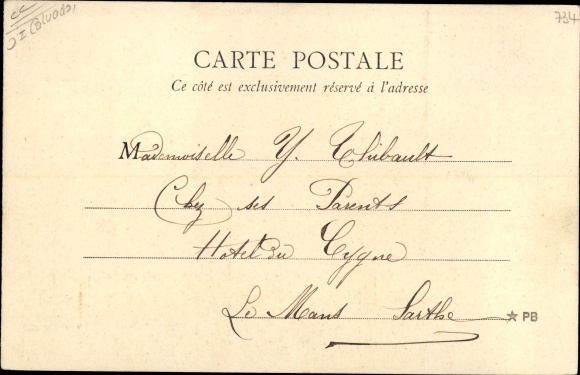 734
CARTE POSTALE
Ce côté est exclusivement réservé à l'adresse
Mademoiselle Y. Thibault
Chez ses Parents
Hotel du Cygne
Le Mans Sarthe
PB